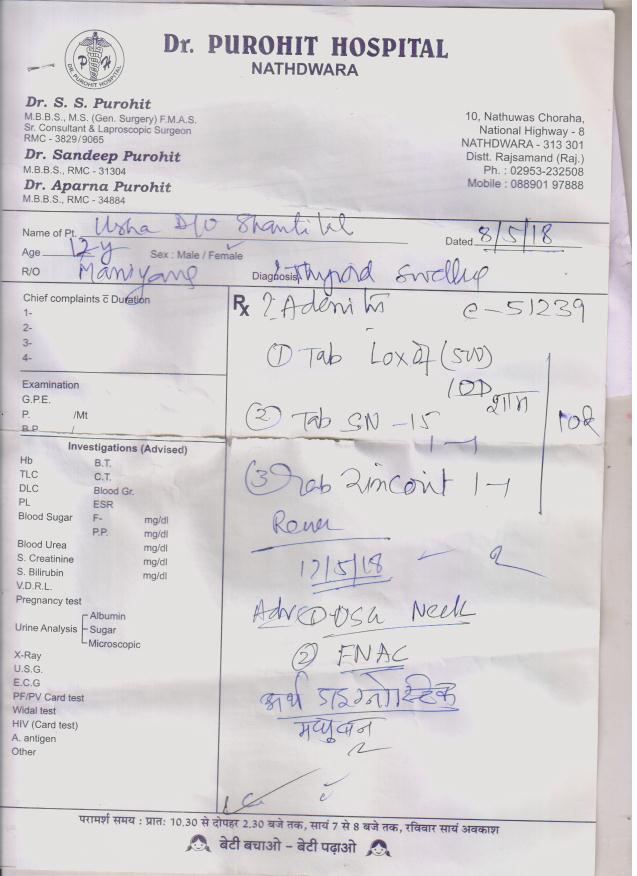 Dr. PUROHIT HOSPITAL
NATHDWARA
P H
DR. PUROHIT HOSPITAL
Dr. S. S. Purohit
M.B.B.S., M.S. (Gen. Surgery) F.M.A.S.
Sr. Consultant & Laproscopic Surgeon
RMC - 3829/9065
Dr. Sandeep Purohit
M.B.B.S., RMC - 31304
Dr. Aparna Purohit
M.B.B.S., RMC - 34884
10, Nathuwas Choraha,
National Highway - 8
NATHDWARA - 313 301
Distt. Rajsamand (Raj.)
Ph. : 02953-232508
Mobile : 088901 97888
Name of Pt. Usha D/O Shantilal
Dated 8/5/18
Age 12 y Sex : Male / Female
R/O Diagnosis ? Thyroid Swelling
Chief complaints c̄ Duration
1-
2-
3-
4-
Examination
G.P.E.
P. /Mt
B.P. /
Investigations (Advised)
Hb B.T.
TLC C.T.
DLC Blood Gr.
PL ESR
Blood Sugar F- mg/dl
P.P. mg/dl
Blood Urea mg/dl
S. Creatinine mg/dl
S. Bilirubin mg/dl
V.D.R.L.
Pregnancy test
Urine Analysis Albumin
Sugar
Microscopic
X-Ray
U.S.G.
E.C.G
PF/PV Card test
Widal test
HIV (Card test)
A. antigen
Other
Rx ? Adenitis e-51239
① Tab (500)
1OD शाम
② Tab SN-15
1-1
③ Tab Zincovit 1-1
17/5/18
Adv ① USG Neck
② FNAC
अर्थ डाइग्नोस्टिक
मधुबन
परामर्श समय : प्रातः 10.30 से दोपहर 2.30 बजे तक, सायं 7 से 8 बजे तक, रविवार सायं अवकाश
बेटी बचाओ - बेटी पढ़ाओ